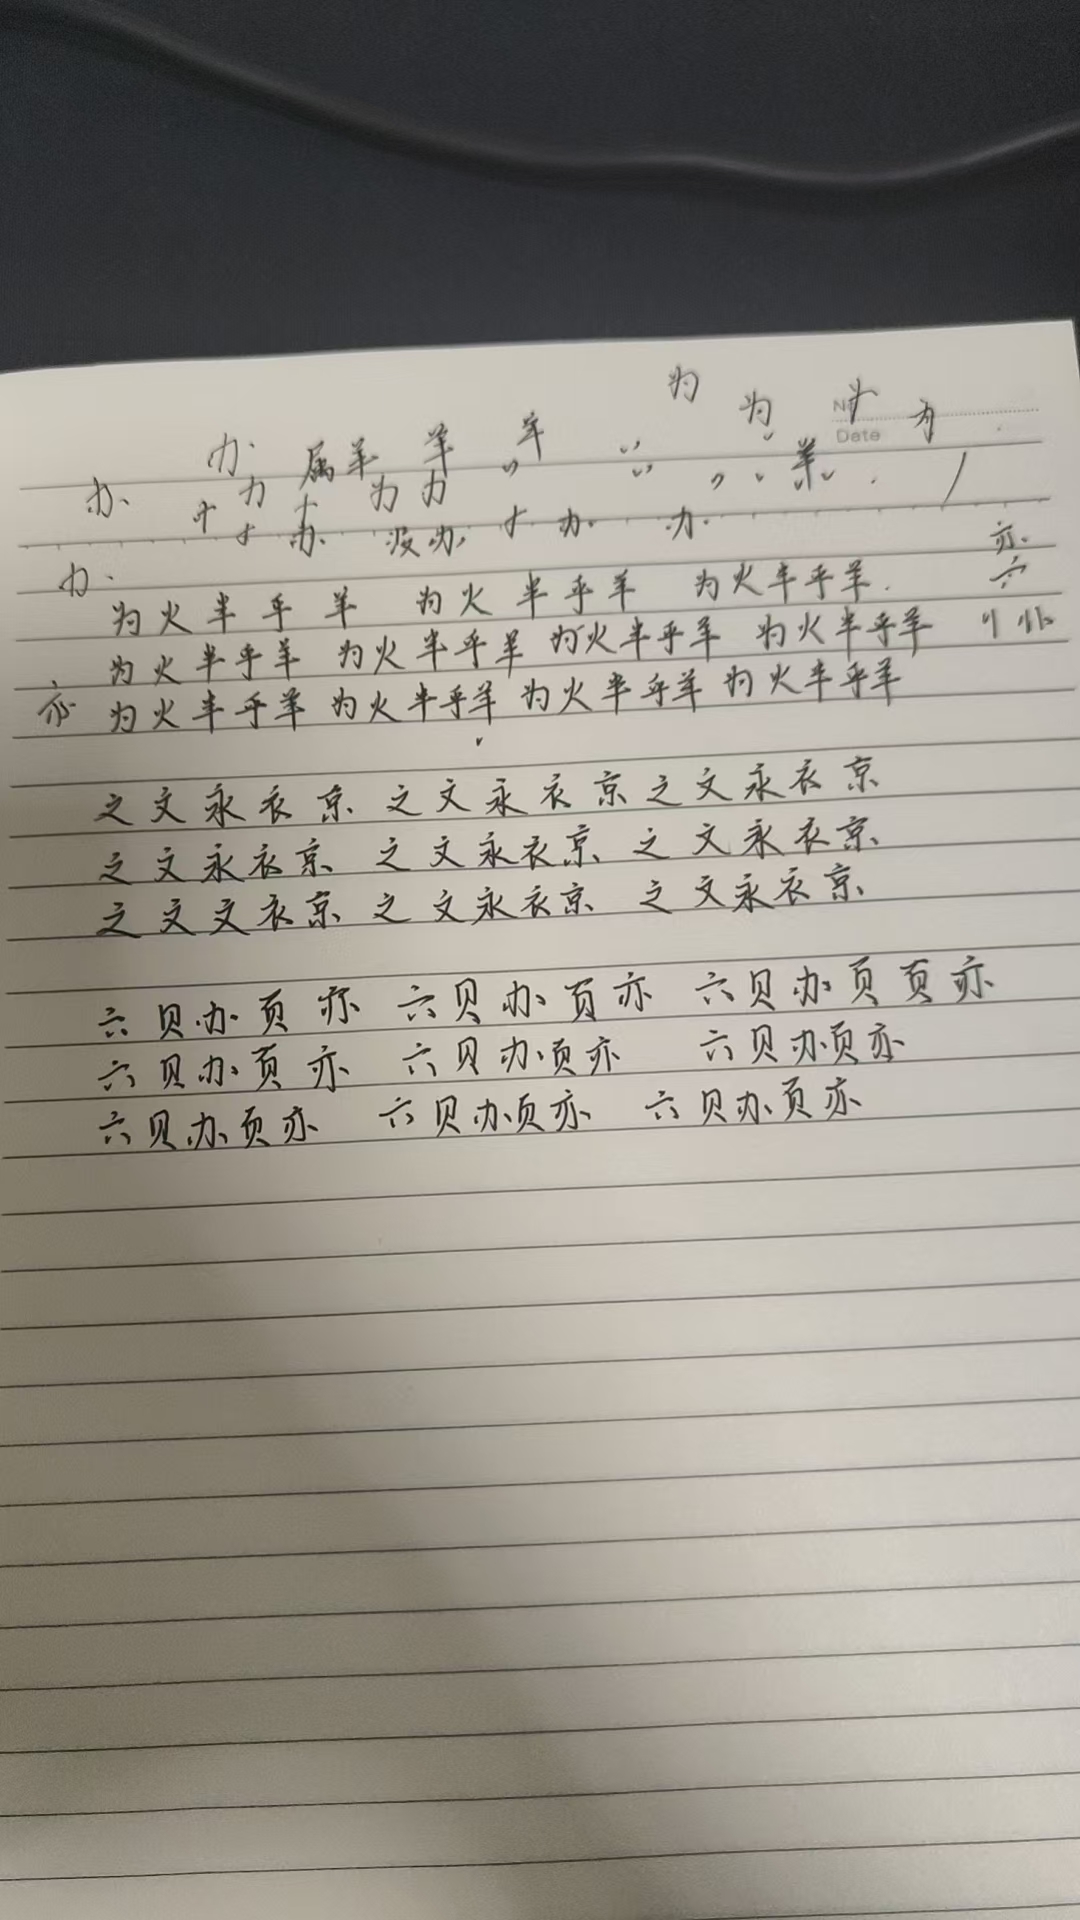 为 为 No
Date
办 属羊 羊
办 力 为力 羊
办 没办 办 办
办
为火半乎羊 为火半乎羊 为火半乎羊 亦
为火半乎羊 为火半乎羊 为火半乎羊 为火半乎羊
亦 为火半乎羊 为火半乎羊 为火半乎羊 为火半乎羊
之文永衣京 之文永衣京 之文永衣京
之文永衣京 之文永衣京 之文永衣京
之文文衣京 之文永衣京 之文永衣京
六贝办页亦 六贝办页亦 六贝办页页亦
六贝办页亦 六贝办页亦 六贝办页亦
六贝办页亦 六贝办页亦 六贝办页亦